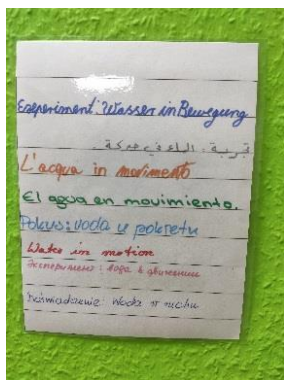 Experiment: Wasser in Bewegung
تجربة: الماء في حركة.
L'acqua in movimento
El agua en movimiento.
Pokus: voda u pokretu
Water in motion
Эксперимент: вода в движении
Doświadczenie: Woda w ruchu